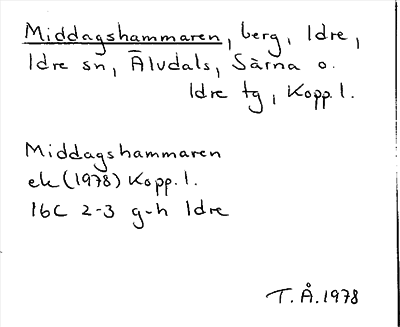 Middagshammaren, berg, Idre,
Idre sn, Älvdals, Särna o.
Idre tg, Kopp.l.
Middagshammaren
ek (1978) Kopp.l.
16C 2-3 g-h Idre
T.Å.1978